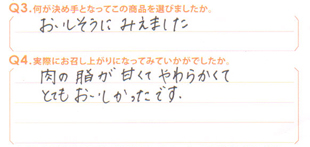 Q3.何が決め手となってこの商品を選びましたか。
おいしそうに みえました
Q4.実際にお召し上がりになってみていかがでしたか。
肉の脂が甘くて やわらかくて
とても おいしかったです.